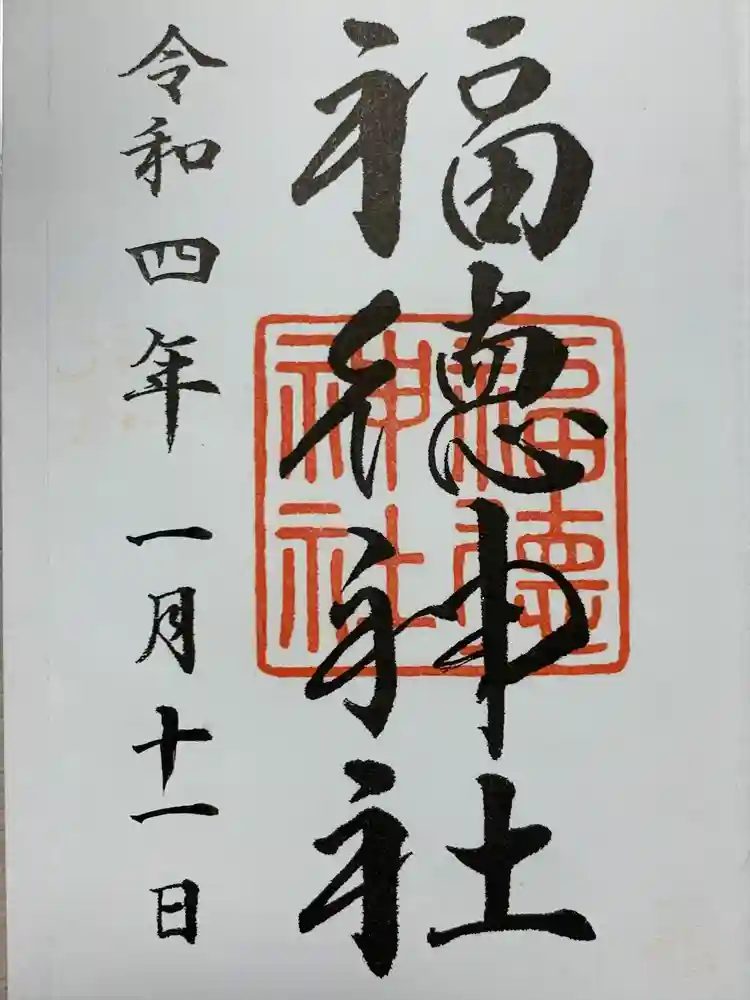 福徳神社
福徳
神社
令和四年一月十一日